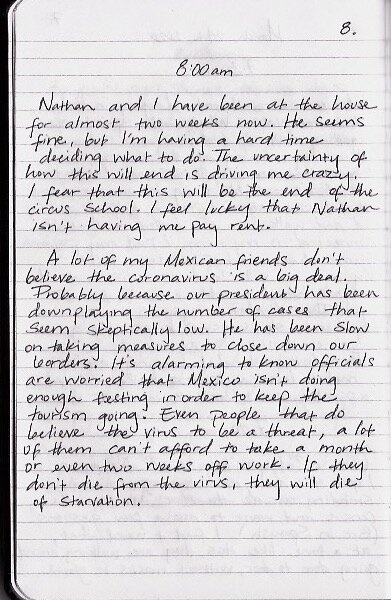 8.
8:00am
Nathan and I have been at the house
for almost two weeks now. He seems
fine, but I'm having a hard time
deciding what to do. The uncertainty of
how this will end is driving me crazy.
I fear that this will be the end of the
circus school. I feel lucky that Nathan
isn't having me pay rent.
A lot of my Mexican friends don't
believe the coronavirus is a big deal.
Probably because our president has been
downplaying the number of cases that
seem skeptically low. He has been slow
on taking measures to close down our
borders. It's alarming to know officials
are worried that Mexico isn't doing
enough testing in order to keep the
tourism going. Even people that do
believe the virus to be a threat, a lot
of them can't afford to take a month
or even two weeks off work. If they
don't die from the virus, they will die
of starvation.